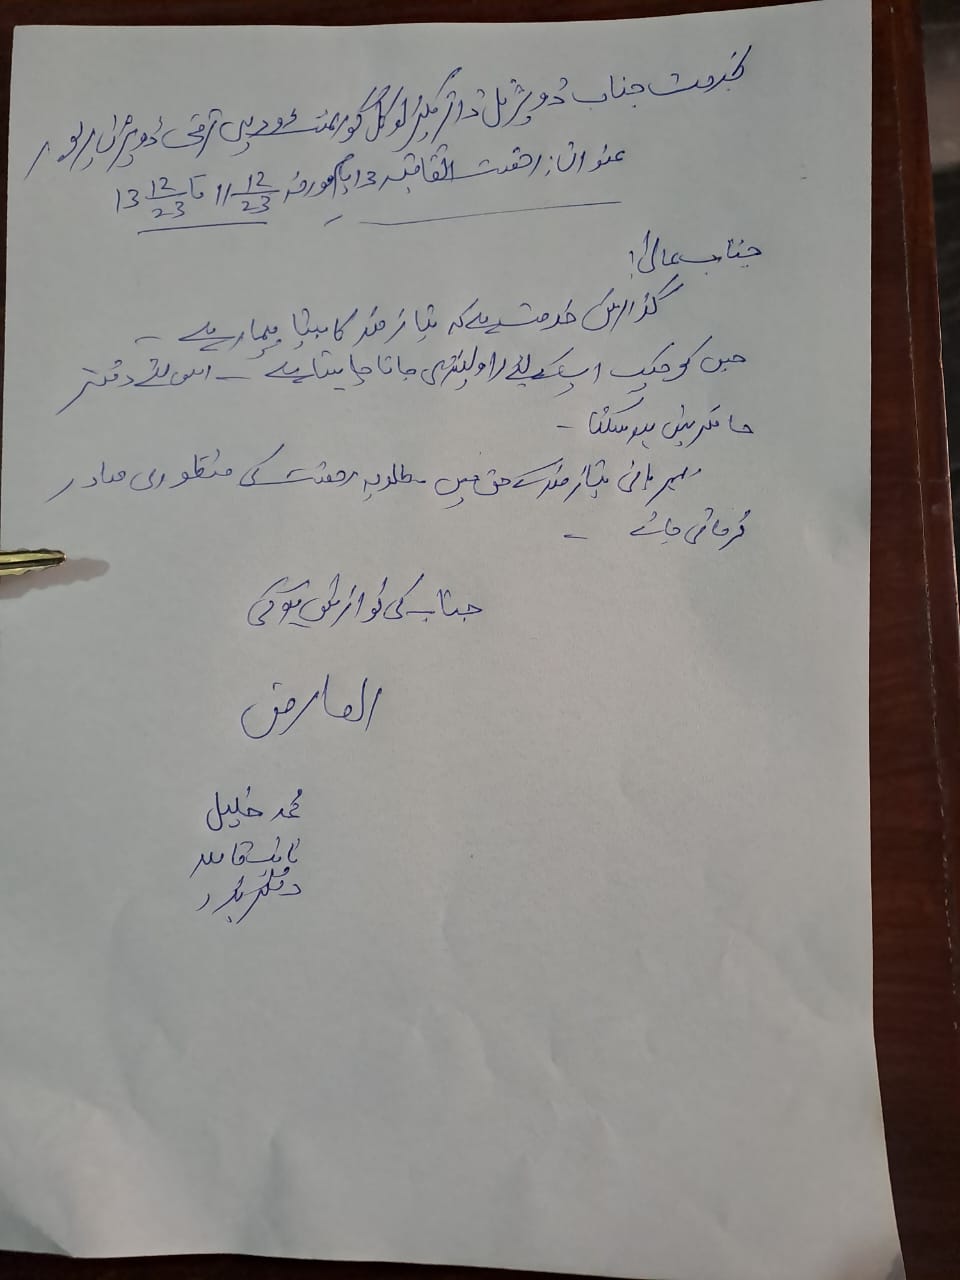 بخدمت جناب ڈویژنل ڈائریکٹر لوکل گورنمنٹ و دیہی ترقی ڈویژن میرپور
عنوان: رخصت اتفاقیہ 3 یوم مورخہ 11 12/23 تا 13 12/23
جناب عالی!
گذارش خدمت ہے کہ نیازمند کا بیٹا بیمار ہے ۔
جس کو چیک اپ کے لئے راولپنڈی جانا چاہتا ہے ۔ اس لئے دفتر
حاضر نہیں ہو سکتا ۔
مہربانی نیازمند کے حق میں مطلوبہ رخصت کی منظوری صادر
فرمائی جائے ۔
جناب کی نوازش ہو گی
العارض
محمد خلیل
نائب قاصد
دفتر